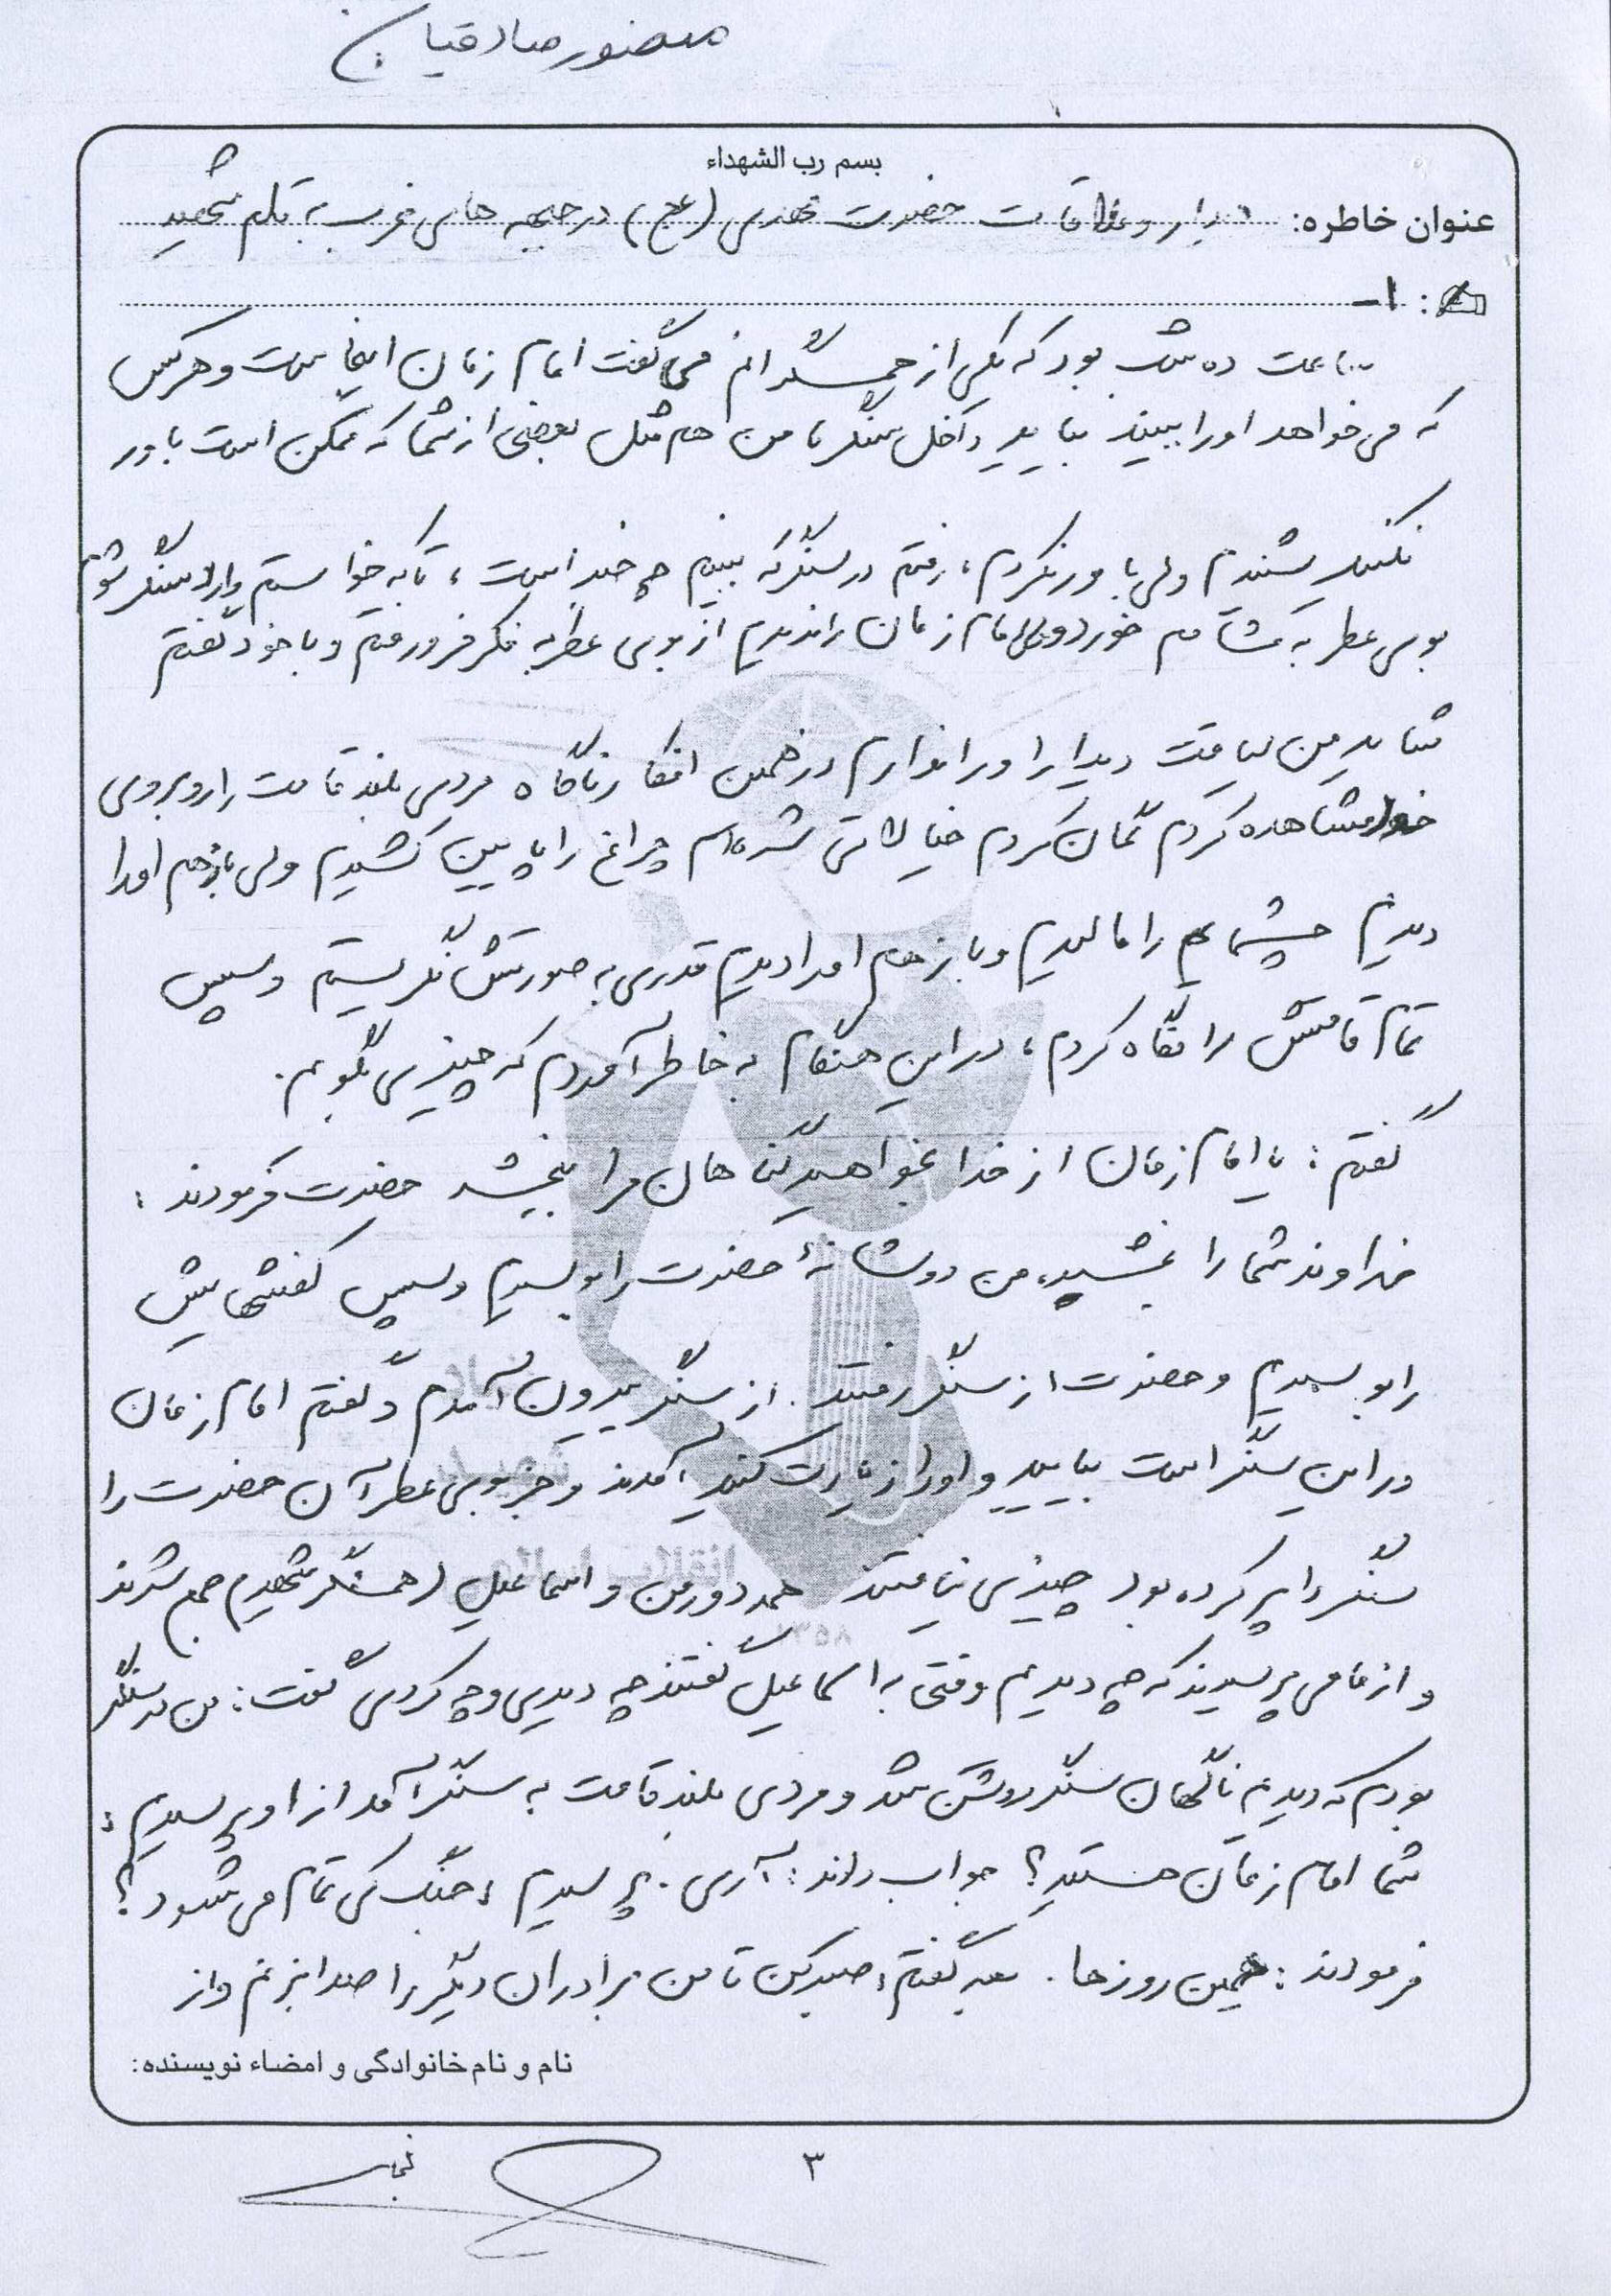 منصور صادقیان
بسم رب الشهداء
عنوان خاطره: دیدار و ملاقات حضرت مهدی (عج) در جبهه های غرب به قلم شهید
: ۱-
ساعت ده شب بود که یکی از همسنگرانم می گفت امام زمان اینجاست و هرکس
که می خواهد او را ببیند بیاید داخل سنگر تا من هم مثل بعضی از شما که ممکن است باور
نکنید شنیدم ولی باور نکردم، رفتم در سنگر که ببینم چه خبر است، تا که خواستم وارد سنگر شوم
بوی عطر به مشامم خورد ولی امام زمان را ندیدم از بوی عطر به فکر فرو رفتم و با خود گفتم
شاید من لیاقت دیدار او را ندارم در همین افکار ناگاه مردی بلند قامت را روبروی
خود مشاهده کردم گمان کردم خیالاتی شده ام چراغ را پایین کشیدم ولی باز هم او را
دیدم چشمایم را مالیدم و باز هم او را دیدم قدری به صورتش نگریستم و سپس
تمام قامتش را نگاه کردم، در این هنگام به خاطر آوردم که چیزی بگویم.
گفتم: یا امام زمان از خدا بخواهید گناهان مرا ببخشد حضرت فرمودند:
خداوند شما را بخشید، من دو شانهٔ حضرت را بوسیدم و سپس کفشهایش
را بوسیدم و حضرت از سنگر رفتند. از سنگر بیرون آمدم و گفتم امام زمان
در این سنگر است بیایید و او را زیارت کنید، آمدند و جز بوی عطر آن حضرت را
سنگر را پر کرده بود چیزی نیافتند همه دور من و اسماعیل (همسنگر شهیدم جمع شدند
و از ما می پرسیدند که چه دیدیم وقتی به اسماعیل گفتند چه دیدی و چه کردی گفت: من در سنگر
بودم که دیدم ناگهان سنگر روشن شد و مردی بلند قامت به سنگر آمد از او پرسیدم:
شما امام زمان هستید؟ جواب دادند: آری. پرسیدم، جنگ کی تمام می شود؟
فرمودند: همین روزها. بعد گفتم، صبر کن تا من برادران دیگر را صدا بزنم و از
نام و نام خانوادگی و امضاء نویسنده:
۳